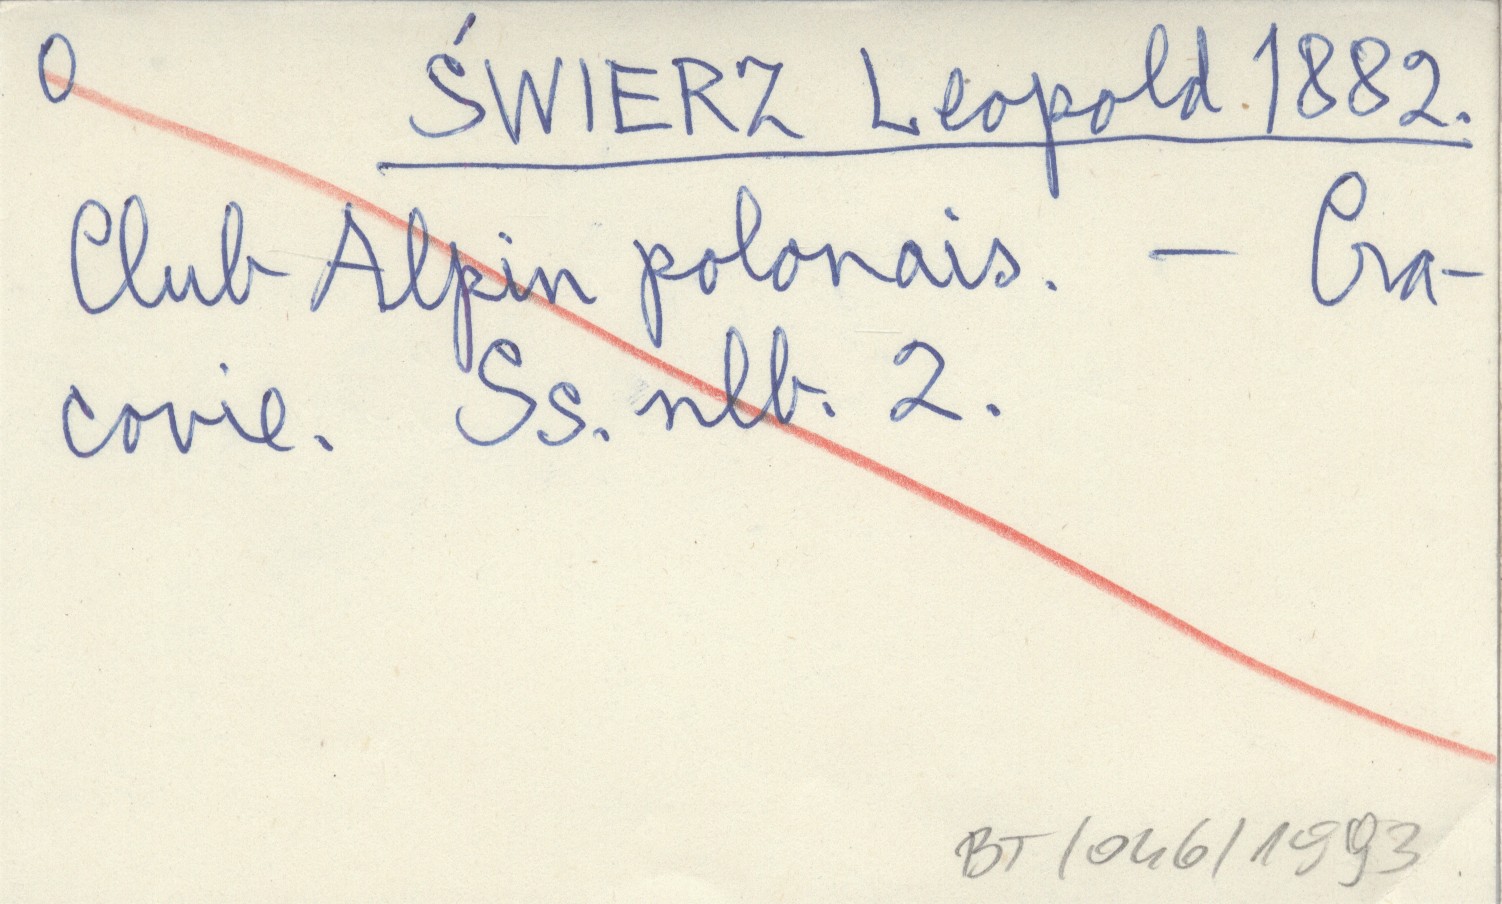 O ŚWIERZ Leopold 1882.
Club Alpin polonais. — Cra-
covie. Ss. nlb. 2.
BT/046/1993